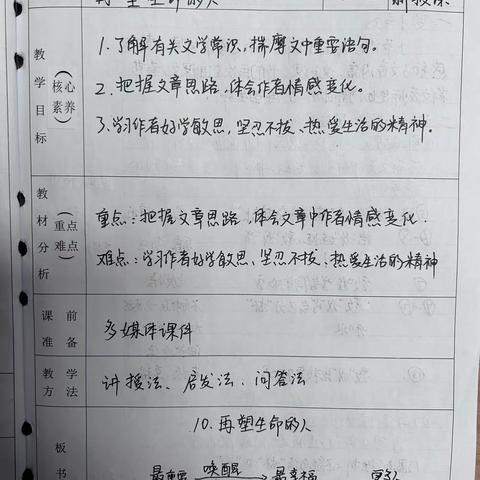 再塑生命的人
新授课
教学目标（核心素养）
1.了解有关文学常识，揣摩文中重要语句。
2.把握文章思路，体会作者情感变化。
3.学习作者好学敏思，坚忍不拔、热爱生活的精神。
教材分析（重点难点）
重点：把握文章思路，体会文章中作者情感变化.
难点：学习作者好学敏思、坚忍不拔、热爱生活的精神
课前准备
多媒体课件
教学方法
讲授法、启发法、问答法
板书
10.再塑生命的人
唤醒
最重要 最幸福